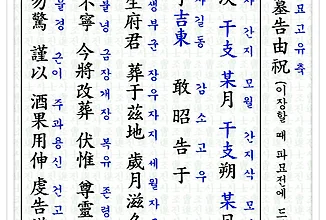 묘고유축
墓告由祝(이장할 때 파묘전에 드
간지 모월 간지삭 모
次 干支 某月 干支朔 某
자길동 감소고우
子吉東 敢昭告于
생부군 장우자지 세월자
生府君 葬于玆地 歲月滋
불녕 금장개장 복유 존령
不寧 今將改葬 伏惟 尊靈
물경 근이 주과용신 건고
勿驚 謹以 酒果用伸 虔告